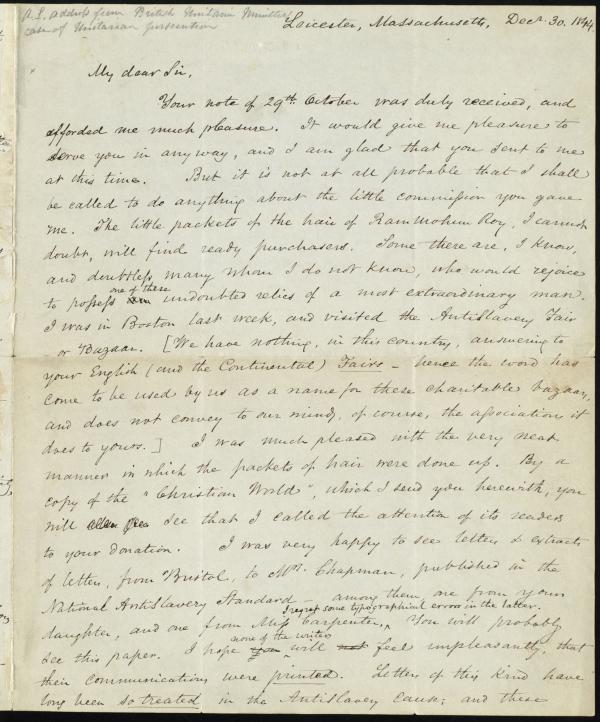 A. S. address from British Unitarian Ministers
case of Unitarian persecution
Leicester, Massachusetts, Decr. 30. 1844.
My dear Sir,
Your note of 29th October was duly received, and
afforded me much pleasure. It would give me pleasure to
serve you in any way, and I am glad that you sent to me
at this time. But it is not at all probable that I shall
be called to do anything about the little commission you gave
me. The little packets of the hair of Rammohun Roy, I cannot
doubt, will find ready purchasers. Some there are, I know,
and doubtless many whom I do not know, who would rejoice
to possess one of these undoubted relics of a most extraordinary man.
I was in Boston last week, and visited the Antislavery Fair
or Bazaar. [We have nothing, in this country, answering to
your English (and the Continental) Fairs – hence the word has
come to be used by us as a name for these charitable bazaars,
and does not convey to our minds, of course, the association it
does to yours.] I was much pleased with the very neat
manner in which the packets of hair were done up. By a
copy of the "Christian World", which I send you herewith, you
will see that I called the attention of its readers
to your donation. I was very happy to see letters & extracts
of letters, from Bristol, to Mrs. Chapman, published in the
National Antislavery Standard – among them one from your
daughter, and one from Miss Carpenter, I regret some typographical errors in the latter. You will probably
see this paper. I hope none of the writers will feel unpleasantly, that
their communications were printed. Letters of this kind have
long been so treated in the Antislavery cause; and these